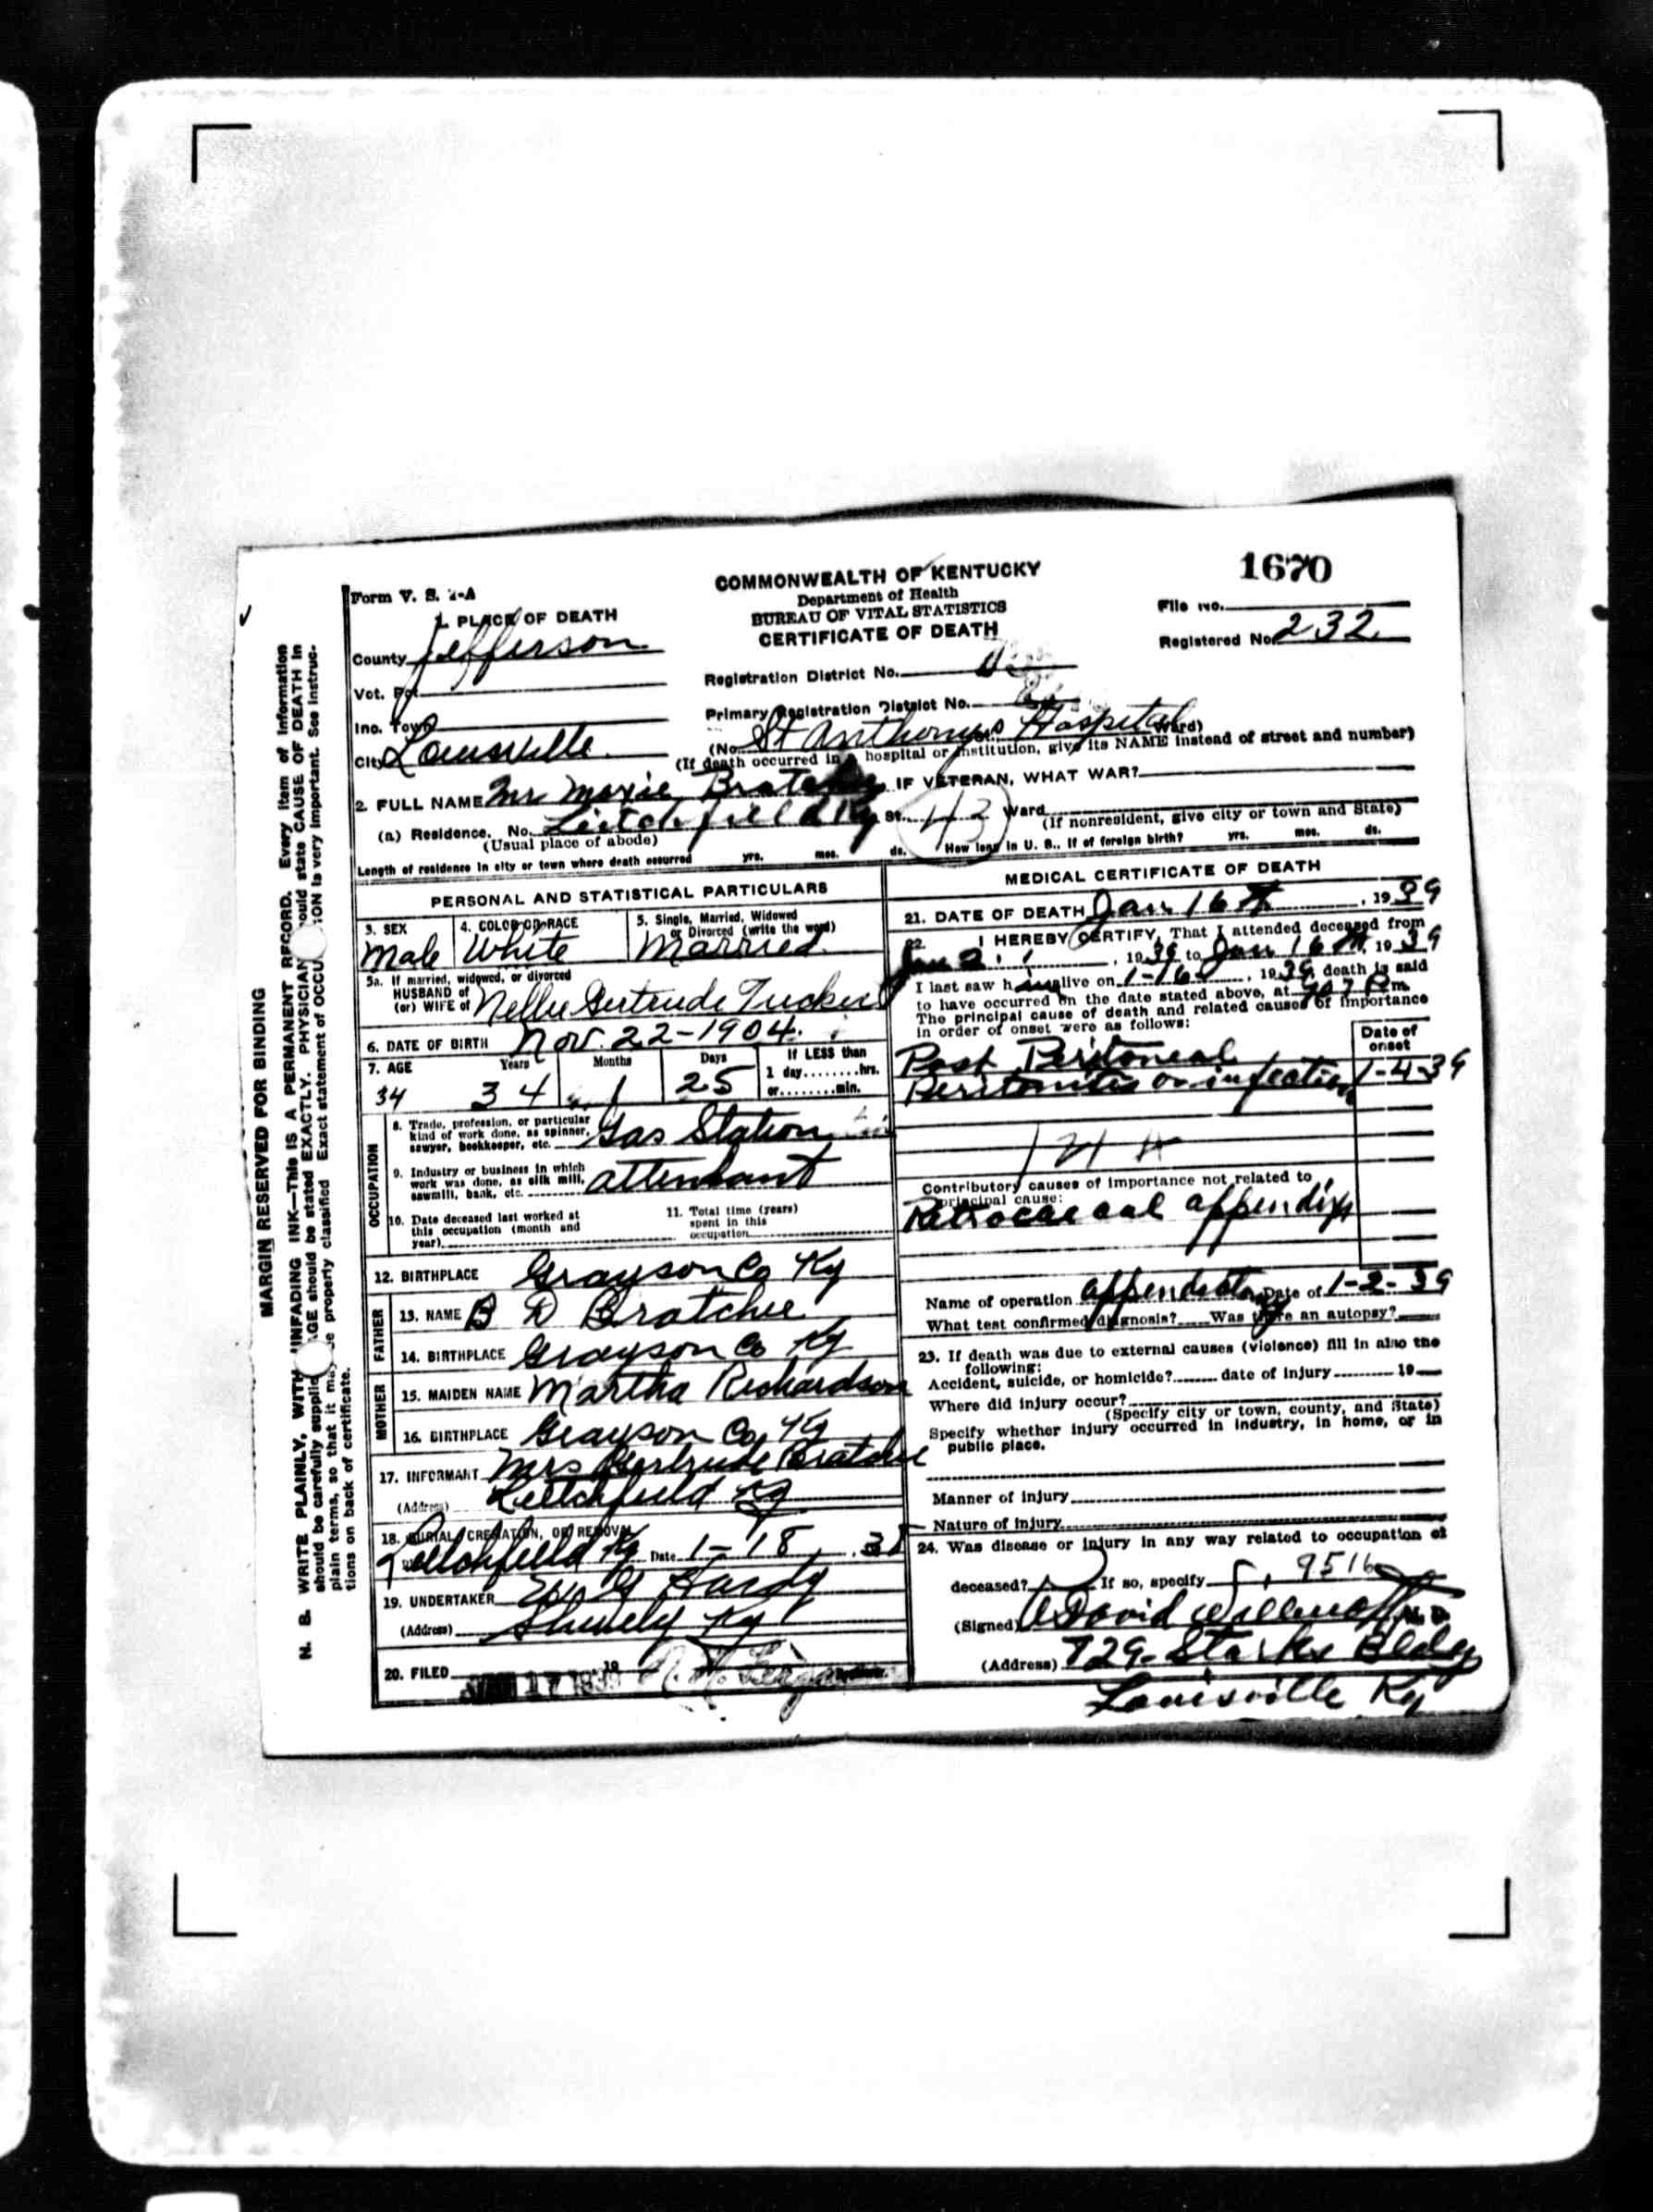 1670
Form V. S. 1-A
COMMONWEALTH OF KENTUCKY
Department of Health
BUREAU OF VITAL STATISTICS
CERTIFICATE OF DEATH
File No.
Registered No. 232
1. PLACE OF DEATH
County Jefferson
Vot. Pct.
Inc. Town
City Louisville
Registration District No.
Primary Registration District No.
(No. St Anthonys Hospital Ward)
(If death occurred in a hospital or institution, give its NAME instead of street and number)
2. FULL NAME Mr Moxie Bratcher IF VETERAN, WHAT WAR?
(a) Residence. No. Leitchfield Ky St. 43 Ward
(Usual place of abode) (If nonresident, give city or town and State)
Length of residence in city or town where death occurred yrs. mos. ds. How long in U. S., if of foreign birth? yrs. mos. ds.
PERSONAL AND STATISTICAL PARTICULARS
3. SEX Male
4. COLOR OR RACE White
5. Single, Married, Widowed or Divorced (write the word) Married
5a. If married, widowed, or divorced
HUSBAND of
(or) WIFE of Nellie Gertrude Tucker
6. DATE OF BIRTH Nov. 22-1904.
7. AGE Years Months Days If LESS than
1 day........hrs.
or........min.
34 34 1 25
OCCUPATION
8. Trade, profession, or particular
kind of work done, as spinner,
sawyer, bookkeeper, etc. Gas Station
9. Industry or business in which
work was done, as silk mill,
sawmill, bank, etc. attendant
10. Date deceased last worked at
this occupation (month and
year)
11. Total time (years)
spent in this
occupation
12. BIRTHPLACE Grayson Co Ky
FATHER
13. NAME B D Bratchie
14. BIRTHPLACE Grayson Co Ky
MOTHER
15. MAIDEN NAME Martha Richardson
16. BIRTHPLACE Grayson Co, Ky
17. INFORMANT Mrs Gertrude Bratcher
(Address) Leitchfield Ky
18. BURIAL, CREMATION, OR REMOVAL
Leitchfield Ky Date 1-18,
19. UNDERTAKER Hardy
(Address) Shively Ky
20. FILED JAN 17 19
MEDICAL CERTIFICATE OF DEATH
21. DATE OF DEATH Jan 16th, 1939
22. I HEREBY CERTIFY, That I attended deceased from
Jan 2, 1939 to Jan 16th, 1939
I last saw him alive on 1-16, 1939, death is said
to have occurred on the date stated above, at 907 Pm.
The principal cause of death and related causes of importance
in order of onset were as follows:
Date of
onset
Post Peritoneal
Peritonitis or infection 1-4-39
Contributory causes of importance not related to
principal cause:
Retrocaecal appendix
Name of operation appendectomy Date of 1-2-39
What test confirmed diagnosis? Was there an autopsy?
23. If death was due to external causes (violence) fill in also the
following:
Accident, suicide, or homicide? date of injury 19
Where did injury occur?
(Specify city or town, county, and State)
Specify whether injury occurred in industry, in home, or in
public place.
Manner of injury
Nature of injury
24. Was disease or injury in any way related to occupation of
deceased? If so, specify 9516
(Signed) David M.D.
(Address) 729-Starks Bldg
Louisville Ky
MARGIN RESERVED FOR BINDING
N. B. WRITE PLAINLY, WITH UNFADING INK—THIS IS A PERMANENT RECORD. Every item of information
should be carefully supplied. AGE should be stated EXACTLY. PHYSICIAN should state CAUSE OF DEATH in
plain terms, so that it may be properly classified. Exact statement of OCCUPATION is very important. See instruc-
tions on back of certificate.